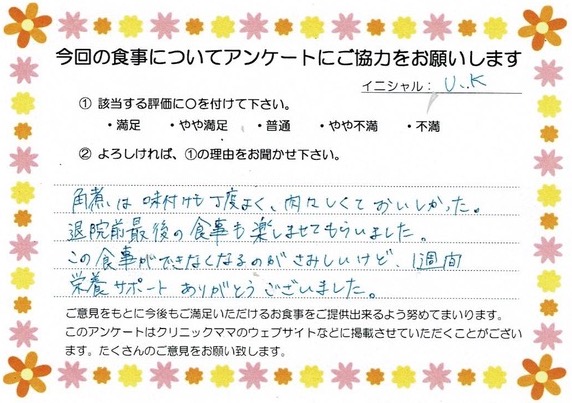 今回の食事についてアンケートにご協力をお願いします
イニシャル： U.K
① 該当する評価に○を付けて下さい。
・満足 ・やや満足 ・普通 ・やや不満 ・不満
② よろしければ、①の理由をお聞かせ下さい。
角煮は味付けも丁度よく、肉々しくておいしかった。
退院前最後の食事も楽しませてもらいました。
この食事ができなくなるのがさみしいけど、1週間
栄養サポートありがとうございました。
ご意見をもとに今後もご満足いただけるお食事をご提供出来るよう努めてまいります。
このアンケートはクリニックママのウェブサイトなどに掲載させていただくことがござい
ます。たくさんのご意見をお願い致します。